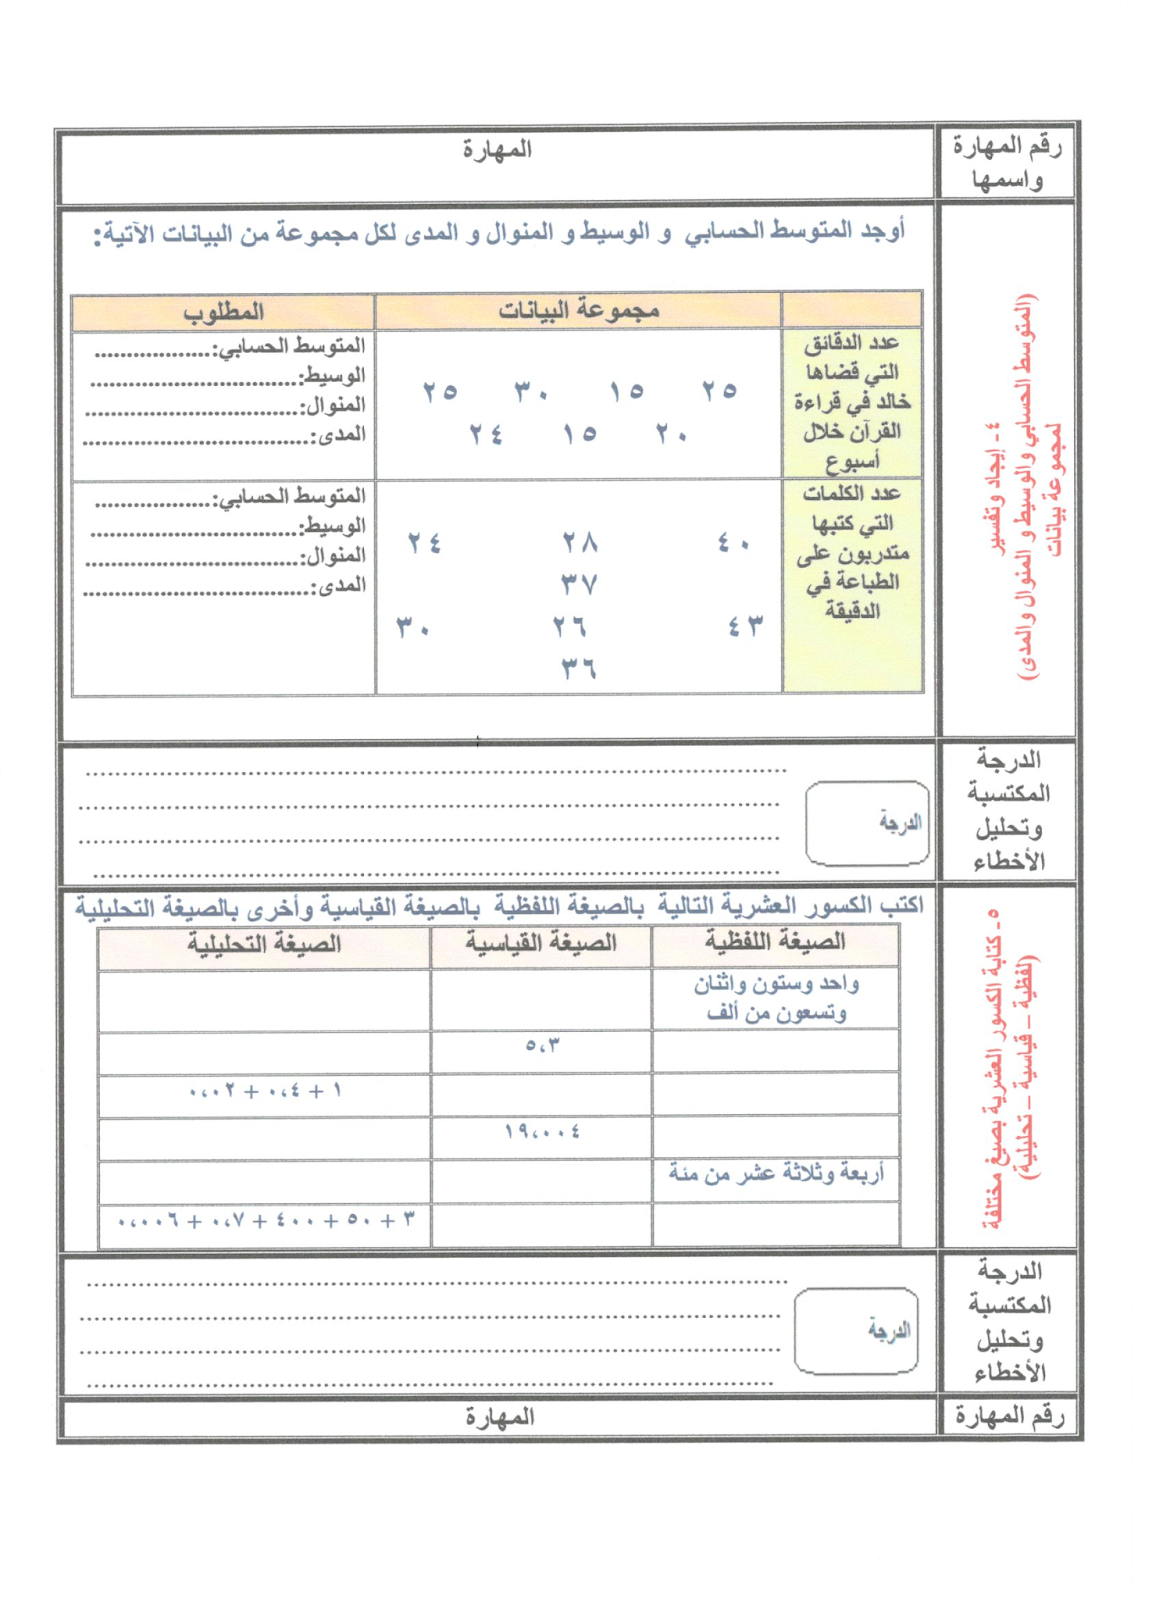 رقم المهارة
واسمها
المهارة
٤- إيجاد وتفسير
(المتوسط الحسابي والوسيط و المنوال والمدى)
لمجموعة بيانات
أوجد المتوسط الحسابي و الوسيط و المنوال و المدى لكل مجموعة من البيانات الآتية:
مجموعة البيانات
المطلوب
عدد الدقائق
التي قضاها
خالد في قراءة
القرآن خلال
أسبوع
٢٥ ١٥ ٣٠ ٢٥
٢٠ ١٥ ٢٤
المتوسط الحسابي:...................
الوسيط:..................................
المنوال:..................................
المدى:.....................................
عدد الكلمات
التي كتبها
متدربون على
الطباعة في
الدقيقة
٤٠ ٢٨ ٢٤
٣٧
٤٣ ٢٦ ٣٠
٣٦
المتوسط الحسابي:...................
الوسيط:..................................
المنوال:..................................
المدى:.....................................
الدرجة
المكتسبة
وتحليل
الأخطاء
الدرجة
٥- كتابة الكسور العشرية بصيغ مختلفة
(لفظية – قياسية – تحليلية)
اكتب الكسور العشرية التالية بالصيغة اللفظية بالصيغة القياسية وأخرى بالصيغة التحليلية
الصيغة اللفظية
الصيغة القياسية
الصيغة التحليلية
واحد وستون واثنان
وتسعون من ألف
٥،٣
١ + ٠،٤ + ٠،٠٢
١٩،٠٠٤
أربعة وثلاثة عشر من مئة
٣ + ٥٠ + ٤٠٠ + ٠،٧ + ٠،٠٠٦
الدرجة
المكتسبة
وتحليل
الأخطاء
الدرجة
رقم المهارة
المهارة